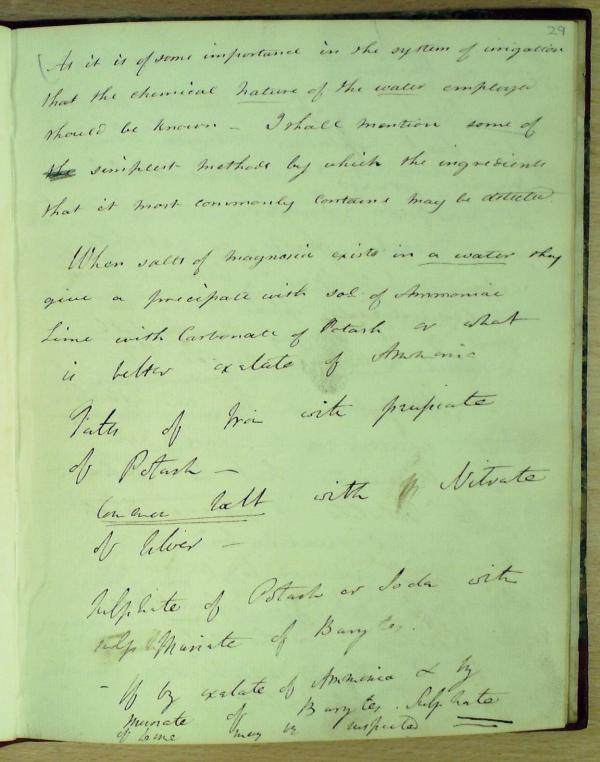 29
As it is of some importance in the system of irrigation
that the chemical nature of the water employed
should be known – I shall mention some of
the simplest methods by which the ingredients
that it most commonly contains may be detected
When salts of magnesia exists in a water they
give a precipate with sol of Ammoniac
Lime with Carbonate of Potash or what
is better oxalate of Ammonia
Salts of Iron with prussiate
of Potash –
Common Salt with Nitrate
of Silver –
Sulphate of Potash or Soda with
Muriate of Barytes.
– If by oxalate of Ammonia & by
Muriate of Barytes. Sulphate
of lime may be suspected